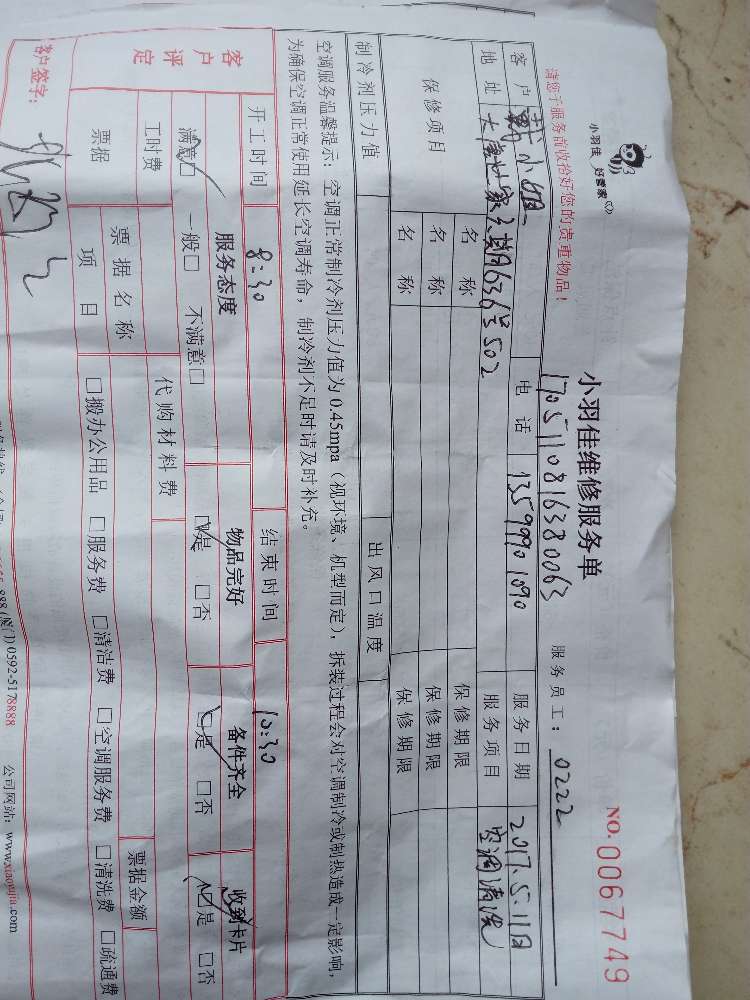 小羽佳 好管家
请您于服务前收拾好您的贵重物品!
小羽佳维修服务单
NO. 0067749
1705110816380063
服务员工: 0222
客户 小姐 电话 13599901090 服务日期 2017.5.11日
地址 大唐世家三期636号502 服务项目 空调清洗
保修项目 名称 保修期限
名称 保修期限
名称 保修期限
制冷剂压力值 出风口温度
空调服务温馨提示: 空调正常制冷剂压力值为0.45mpa (视环境、机型而定), 拆装过程会对空调制冷或制热造成一定影响,
为确保空调正常使用延长空调寿命, 制冷剂不足时请及时补充。
开工时间 8:30 结束时间 10:30
客户评定 服务态度 物品完好 备件齐全 收到卡片
满意□ 一般□ 不满意□ □是 □否 □是 □否 □是 □否
工时费 代购材料费
票据 票据名称 票据金额
项目 □搬办公用品 □服务费 □清洁费 □空调服务费 □清洗费 □疏通费
客户签字:
888 (厦门) 0592-5178888 公司网站: www.xiaoyujia.com